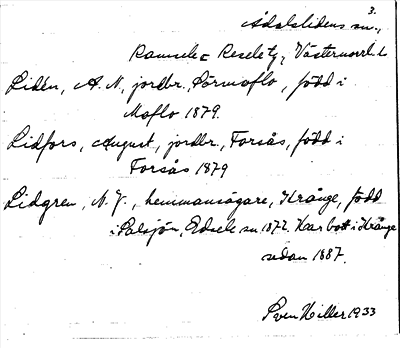 3.
Ådalslidens sn.,
Ramsele= Resele tg, Västernorrl. l
Lidén, A. N., jordbr., Sörmoflo, född i
Moflo 1879.
Lidfors, August, jordbr., Forsås, född i
Forsås 1879
Lidgren, N. J., hemmansägare, Krånge, född
i Salsjön, Edsele sn 1872. Har bott i Krånge
sedan 1887.
Sven Hiller 1933